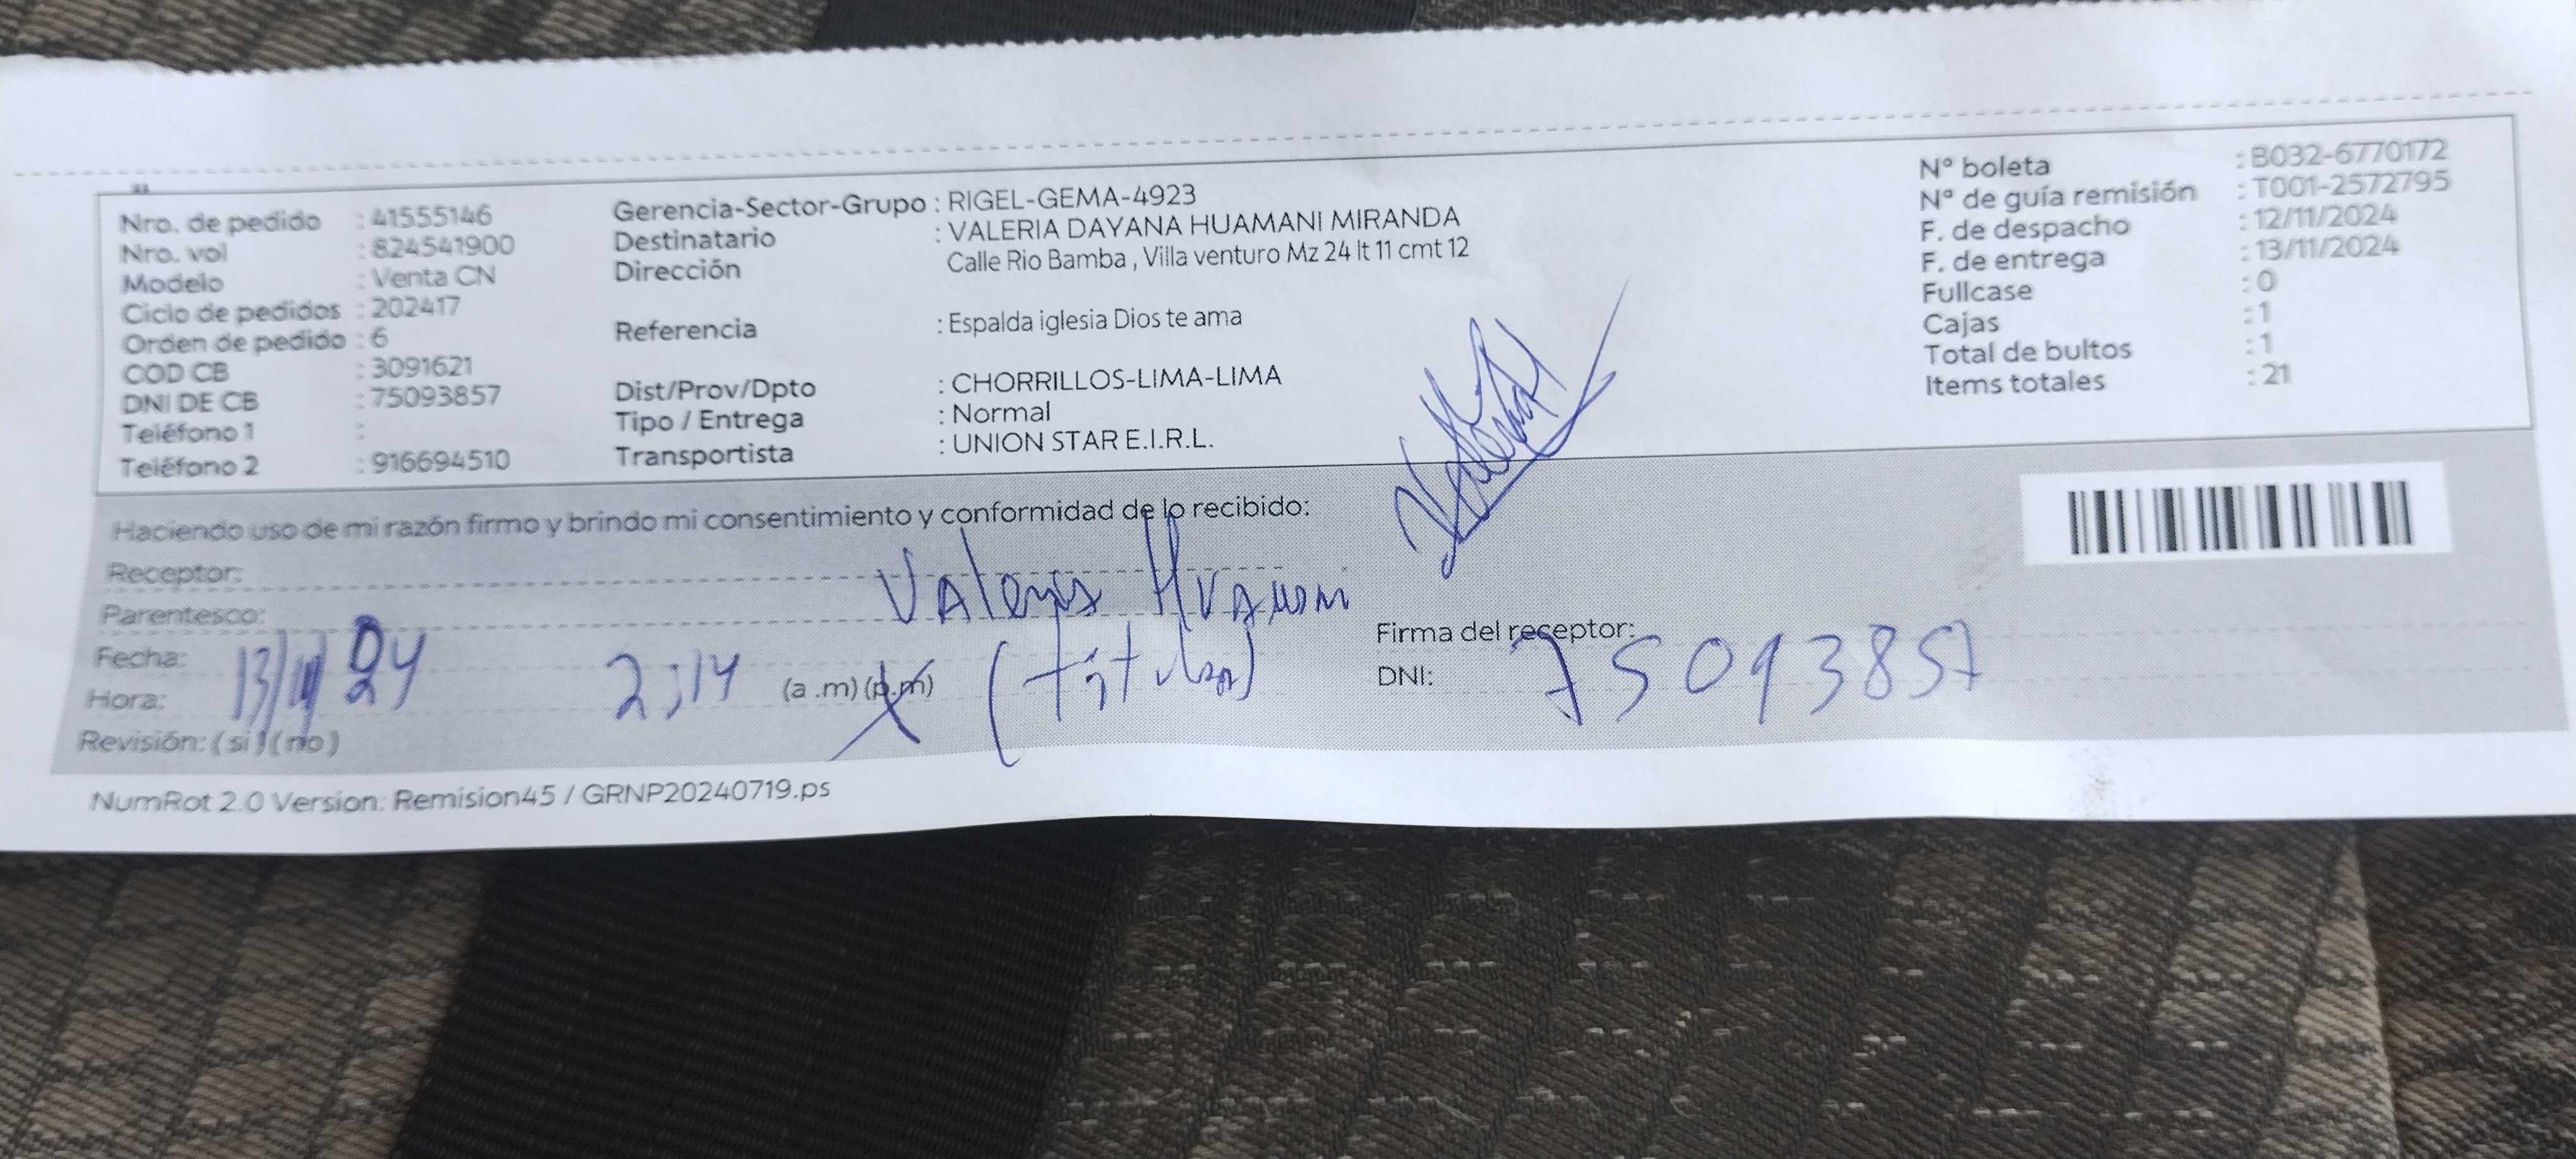 Nro. de pedido : 41555146
Nro. vol : 824541900
Modelo : Venta CN
Ciclo de pedidos : 202417
Orden de pedido : 6
COD CB : 3091621
DNI DE CB : 75093857
Teléfono 1 :
Teléfono 2 : 916694510
Gerencia-Sector-Grupo : RIGEL-GEMA-4923
Destinatario : VALERIA DAYANA HUAMANI MIRANDA
Dirección Calle Rio Bamba , Villa venturo Mz 24 lt 11 cmt 12
Referencia : Espalda iglesia Dios te ama
Dist/Prov/Dpto : CHORRILLOS-LIMA-LIMA
Tipo / Entrega : Normal
Transportista : UNION STAR E.I.R.L.
N° boleta : B032-6770172
Nª de guía remisión : T001-2572795
F. de despacho : 12/11/2024
F. de entrega : 13/11/2024
Fullcase : 0
Cajas : 1
Total de bultos : 1
Items totales : 21
Haciendo uso de mi razón firmo y brindo mi consentimiento y conformidad de lo recibido:
Receptor: Valeria
Parentesco: (titular)
Fecha: 13/11/24
Hora: 2:14 (a .m) (p.m)
Revisión: ( si ) ( no )
Firma del receptor:
DNI: 75093857
NumRot 2.0 Version: Remision45 / GRNP20240719.ps